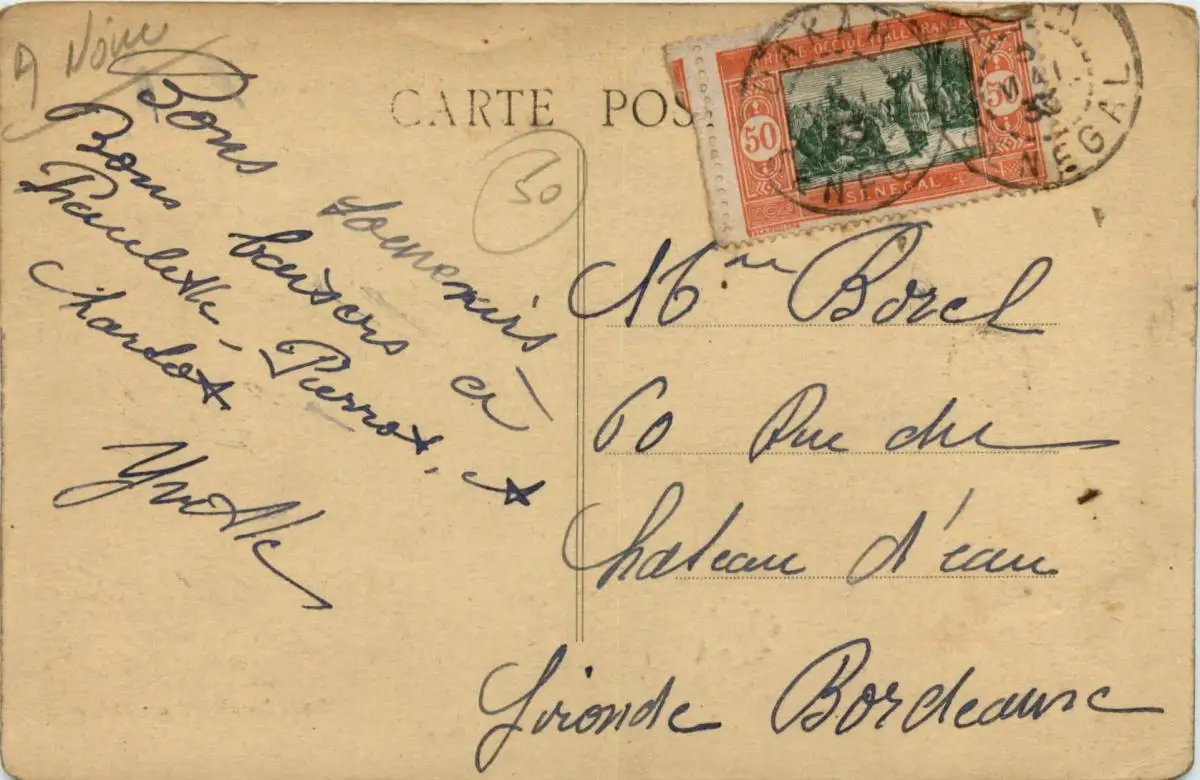 A Now
CARTE POS
50
Bons souvenirs
Bons baisers à
Paulette, Pierrot, et
Charlot.
Yvette
AFRIQUE OCCIDENTALE FRANCAISE
50
50
SENEGAL
DAKAR
SENEGAL
Mme Borel
60 Rue du
Chateau d'eau
Gironde Bordeaux